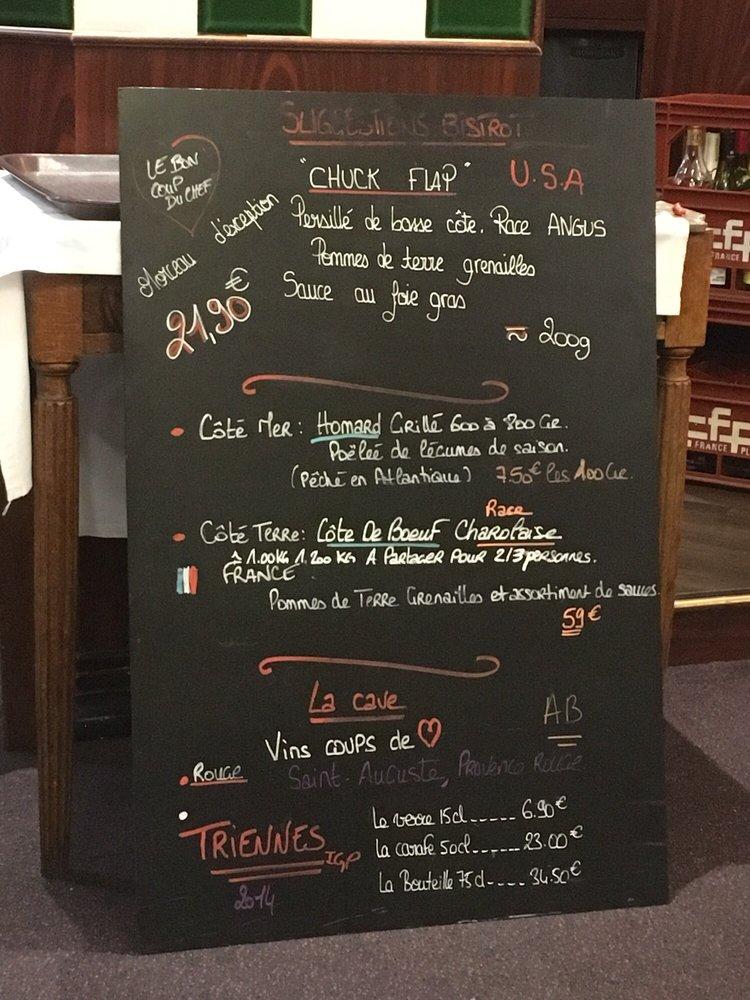 SUGGESTIONS BISTROT
LE BON
COUP
DU CHEF
"CHUCK FLAP" U.S.A
Morceau d'exception
Persillé de basse côte. Race ANGUS
Pommes de terre grenailles
Sauce au foie gras
21,90€
≈ 200g
• Côté Mer: Homard Grillé 600 à 800 Gr.
Poëleé de légumes de saison.
(Pêché en Atlantique) 7.50€ les 100Gr.
Race
• Côté Terre: Côte De Boeuf Charolaise
≃ 1.00KG 1.200 KG A Partager Pour 2/3 personnes.
FRANCE
Pommes de Terre Grenailles et assortiment de sauces.
59€
La cave
Vins coups de ♡
AB
• Rouge Saint-Auguste, Provence Rouge
• TRIENNES IGP
2014
Le verre 15cl ----- 6.90€
la carafe 50cl ------ 23.00€
La Bouteille 75cl ---- 34.50€
FRANCE
cfp
FRANCE